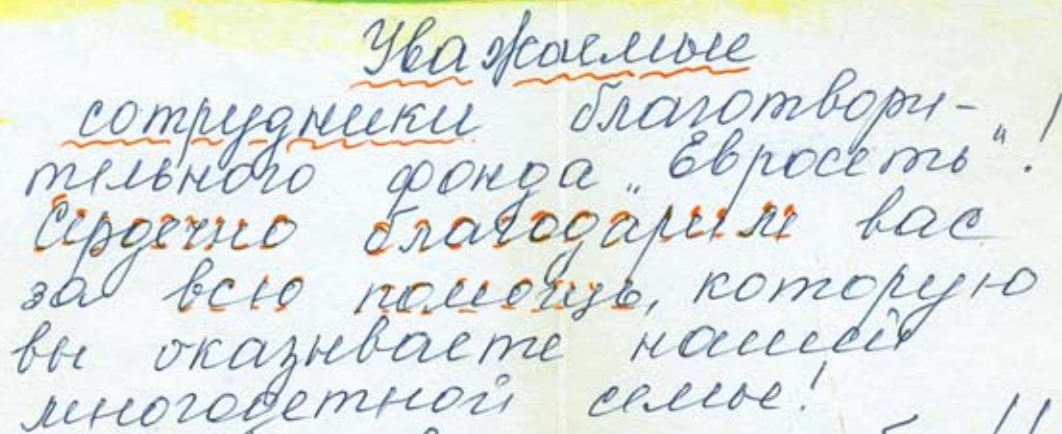 Уважаемые
сотрудники благотвори-
тельного фонда „Евросеть"!
Сердечно благодарим вас
за всю помощь, которую
вы оказываете нашей
многодетной семье!